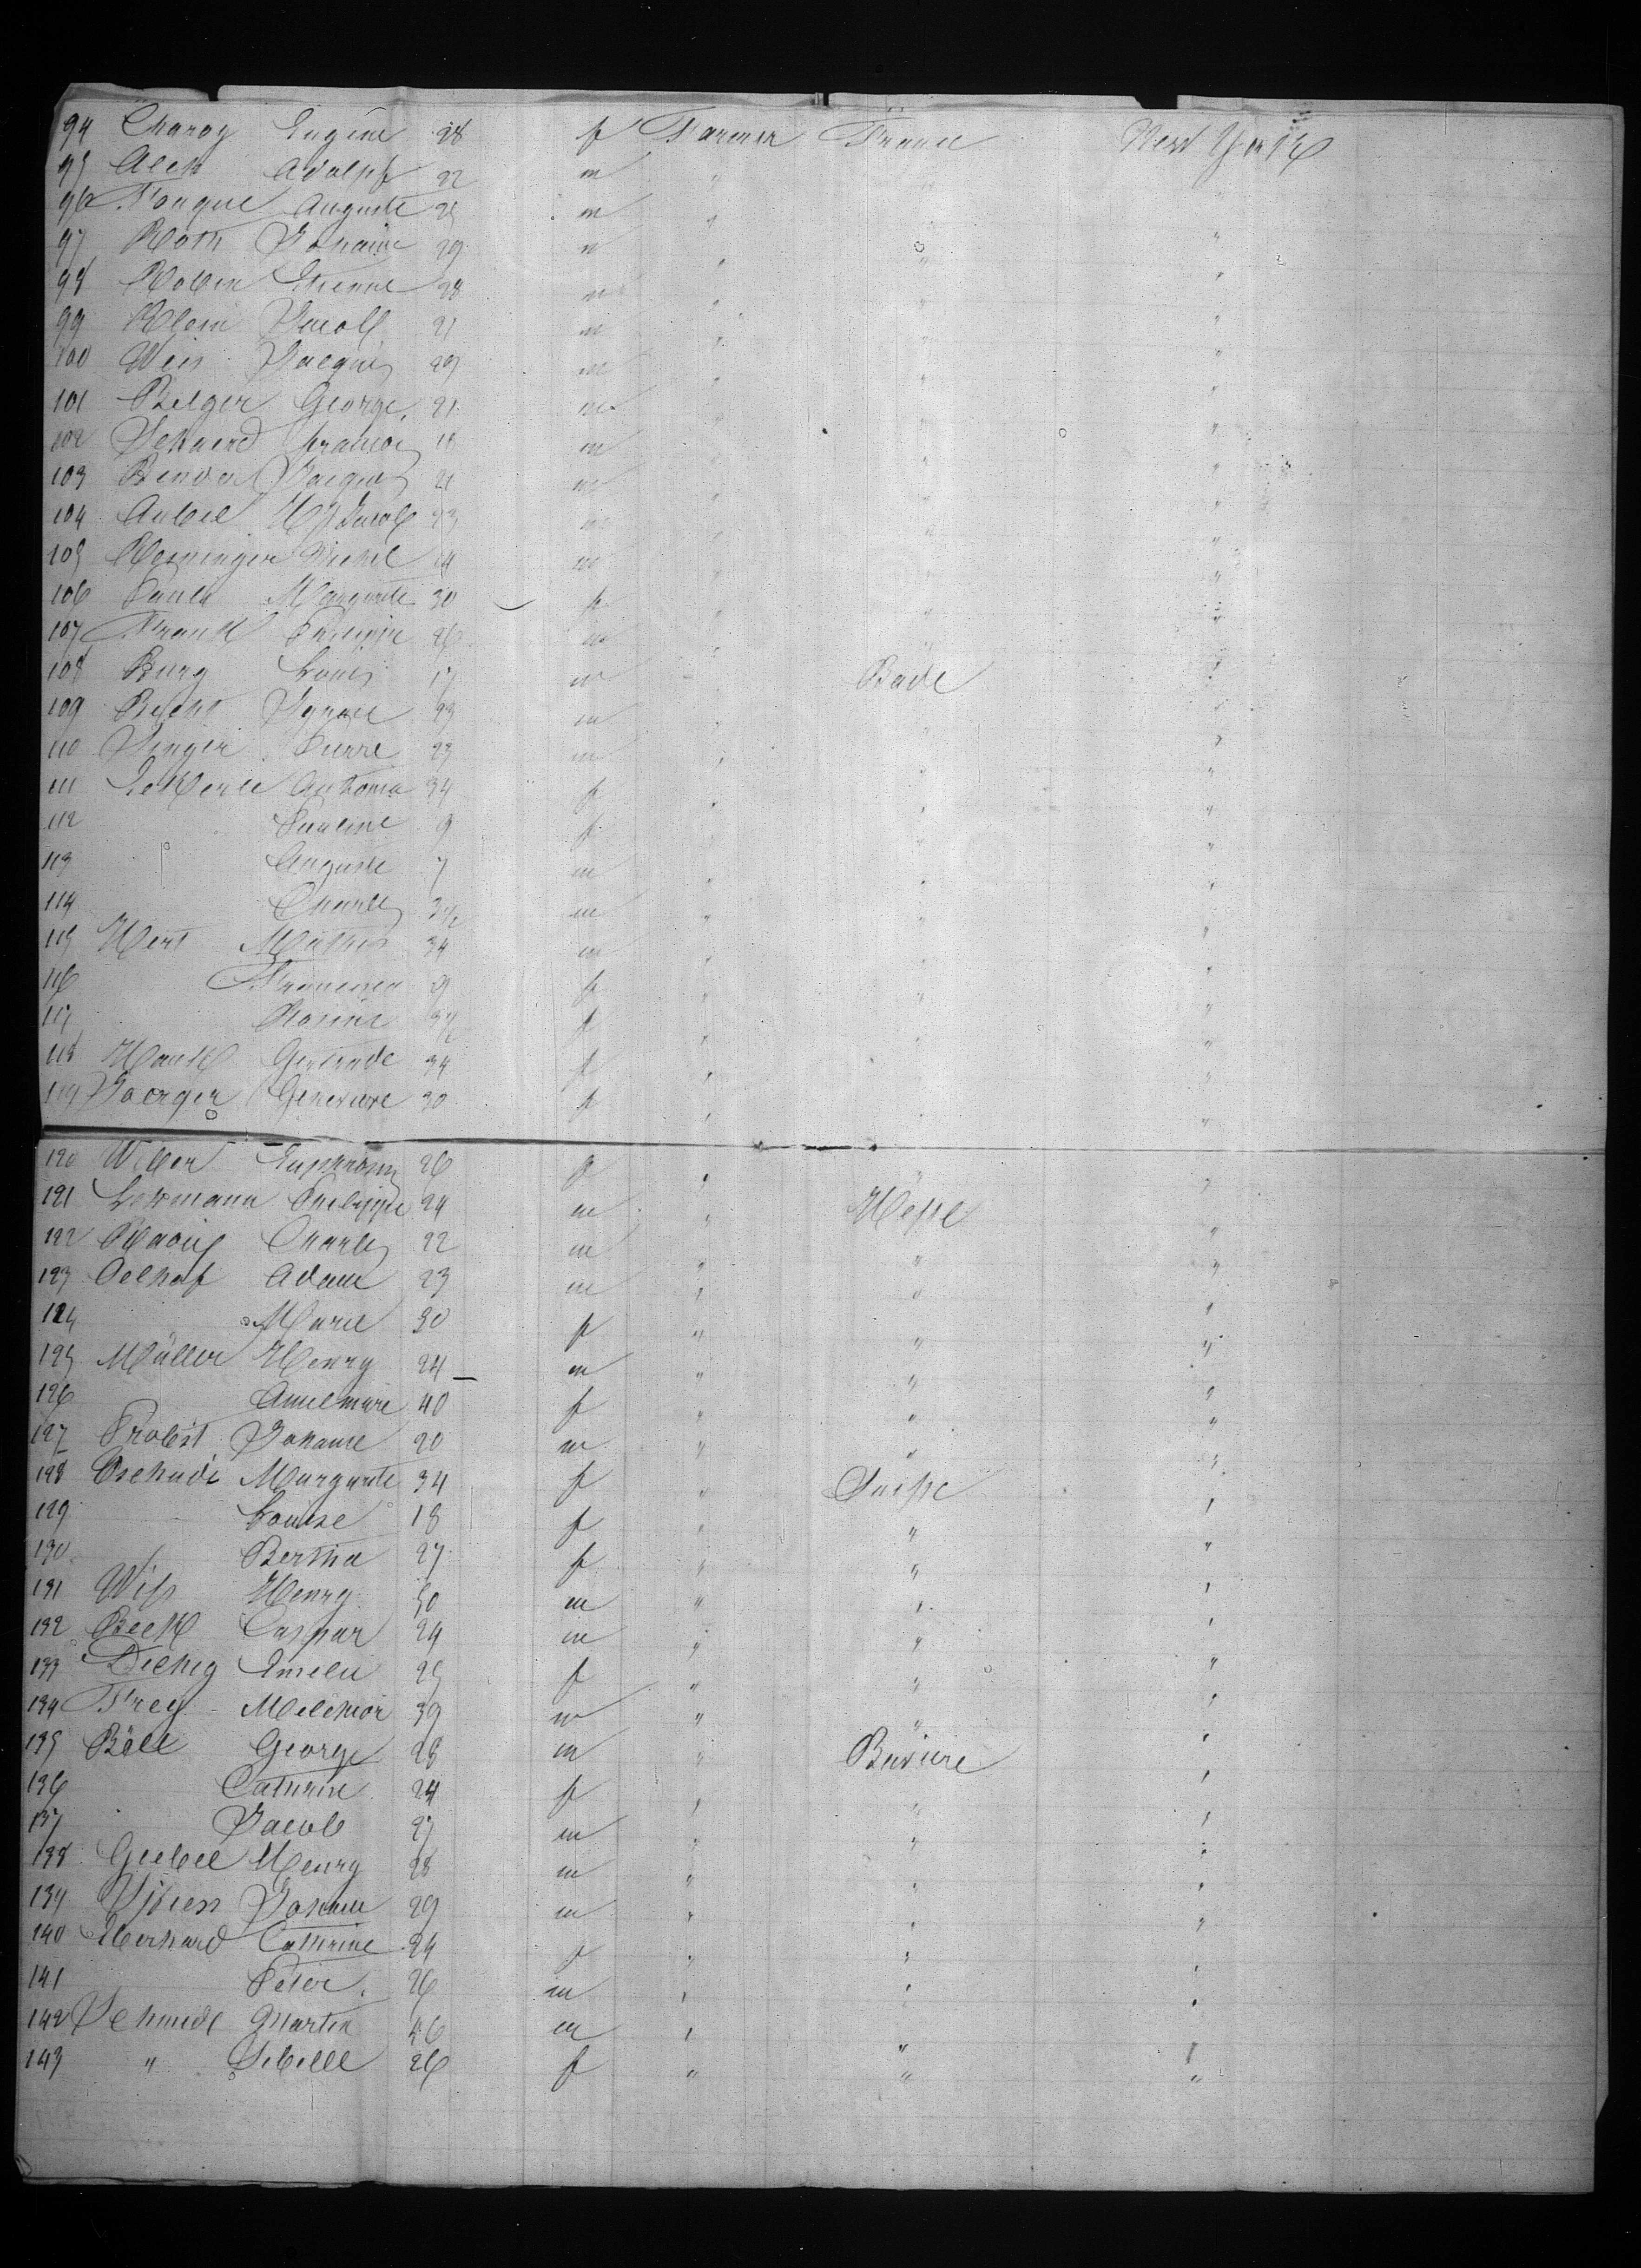 94 Charoy Eugène 28 f Farmer France New York
95 Alex Adolph 22 m " " "
96 Fouque Auguste 25 m " " "
97 Roth Johann 29 m " " "
98 Robin Etienne 28 m " " "
99 Klein Jacob 21 m " " "
100 Weis Jacques 29 m " " "
101 Belger George 21 m " " "
102 Schaerd Francois 18 m " " "
103 Bender Jacques 21 m " " "
104 Aubel Jacob 23 m " " "
105 Michel 14 m " " "
106 Marguerite 30 f " " "
107 Frank Philippe 26 m " " "
108 Burg Louis 17 m " Bade "
109 Becht Ignace 23 m " " "
110 Singer Pierre 23 m " " "
111 Antonia 34 f " " "
112 Pauline 9 f " " "
113 Auguste 7 m " " "
114 Charles 3 1/2 m " " "
115 Hert Mathis 34 m " " "
116 Francisca 9 f " " "
117 Rosine 3 1/2 f " " "
118 Hauck Gertrude 34 f " " "
119 Joerger Genevieve 30 f " " "
120 Weber Euphrosin 26 f " " "
121 Lohrmann Philippe 24 m " Hesse "
122 Charles 22 m " " "
123 Oelhaf Adam 23 m " " "
124 Marie 30 f " " "
125 Müller Henry 24 m " " "
126 Annemarie 40 f " " "
127 Probst Johann 20 m " " "
128 Tschudi Marguerite 34 f " Suisse "
129 Louise 18 f " " "
130 Bertha 27 f " " "
131 Wiss Henry 50 m " " "
132 Beck Caspar 24 m " " "
133 Diehig Emelie 25 f " " "
134 Frey Melchior 39 m " " "
135 Böll George 28 m " Baviere "
136 Cathrine 24 f " " "
137 Jacob 27 m " " "
138 Giebel Henry 28 m " " "
139 Johann 29 m " " "
140 Eberhard Cathrine 24 f " " "
141 Peter 26 m " " "
142 Schmidt Martin 46 m " " "
143 " Sibille 26 f " " "